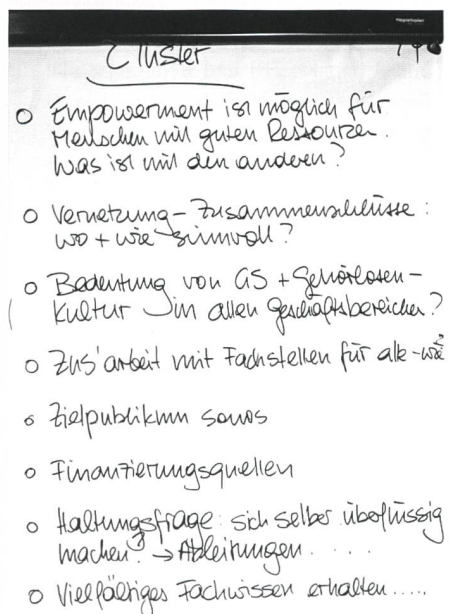 Cluster
o Empowerment ist möglich für
Menschen mit guten Ressourcen.
Was ist mit den anderen?
o Vernetzung - Zusammenschlüsse :
wo + wie sinnvoll?
o Bedeutung von GS + Gehörlosen-
kultur in allen Geschäftsbereichen?
o Zus'arbeit mit Fachstellen für alle - wie?
o Zielpublikum sonos
o Finanzierungsquellen
o Haltungsfrage: sich selber überflüssig
machen? → Ableitungen.....
o Vielfältiges Fachwissen erhalten.....